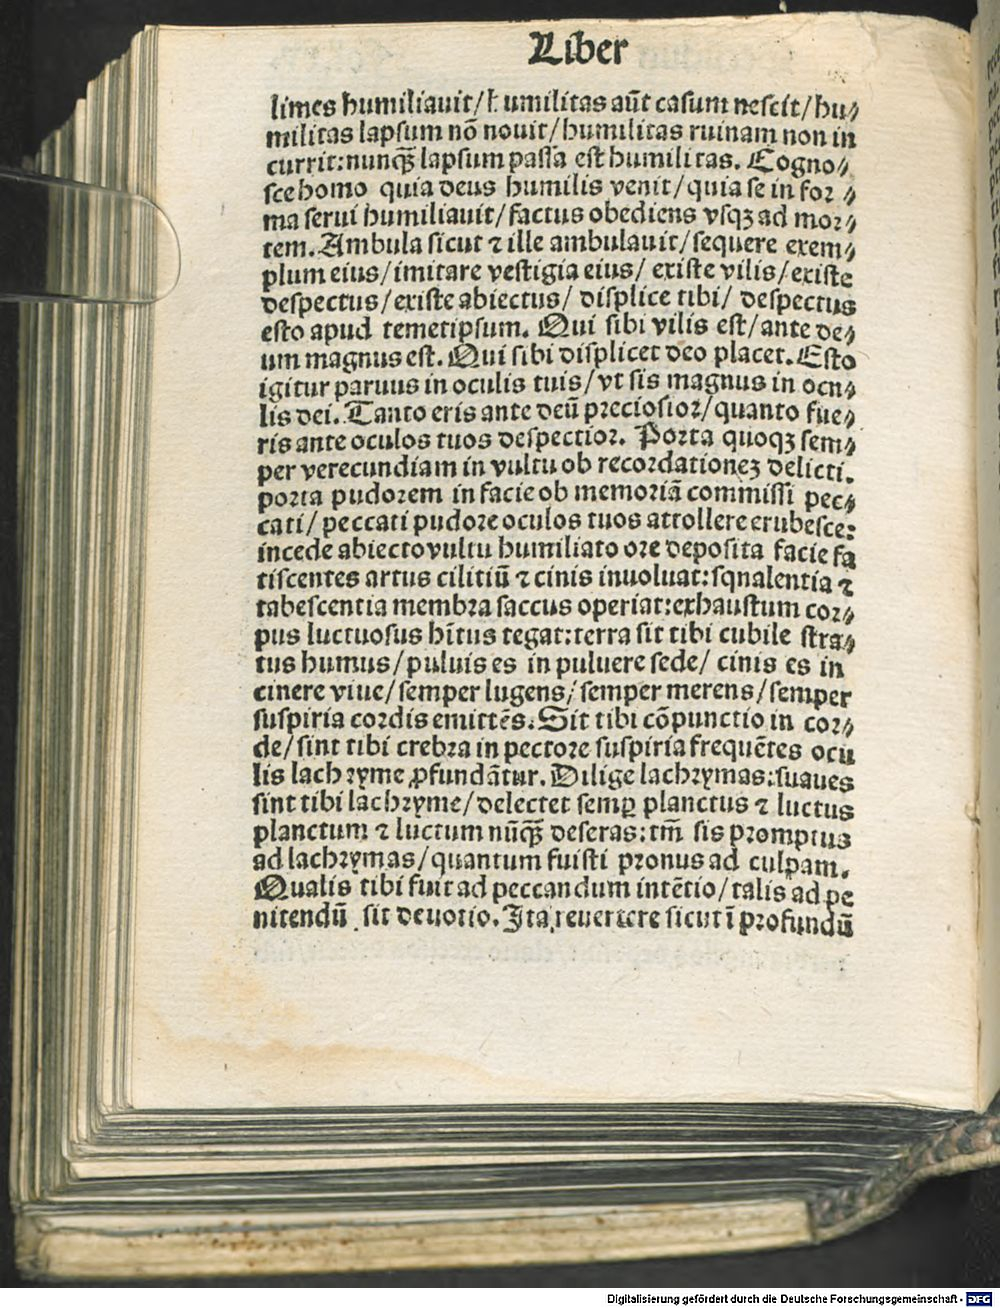 Liber
limes humiliauit/humilitas aūt casum nescit/hu⸗
militas lapsum nō nouit/humilitas ruinam non in
currit:nunqꝫ lapsum passa est humilitas. Cogno⸗
sce homo quia deus humilis venit/quia se in for⸗
ma serui humiliauit/factus obediens vsqꝫ ad mor⸗
tem. Ambula sicut ⁊ ille ambulauit/sequere exem⸗
plum eius/imitare vestigia eius/ existe vilis/existe
despectus/existe abiectus/ displice tibi/ despectus
esto apud temetipsum. Qui sibi vilis est/ante de⸗
um magnus est. Qui sibi displicet deo placet. Esto
igitur paruus in oculis tuis/vt sis magnus in ocu⸗
lis dei. Tanto eris ante deū preciosior/quanto fue⸗
ris ante oculos tuos despectior. Porta quoqꝫ sem⸗
per verecundiam in vultu ob recordationeꝫ delicti.
porta pudorem in facie ob memoriā commissi pec⸗
cati/ peccati pudore oculos tuos attollere erubesce:
incede abiecto vultu humiliato ore deposita facie fa
tiscentes artus cilitiū ⁊ cinis inuoluat:sqnalentia ⁊
tabescentia membra saccus operiat:exhaustum cor⸗
pus luctuosus hītus tegat:terra sit tibi cubile stra⸗
tus humus/puluis es in puluere sede/ cinis es in
cinere viue/semper lugens/semper merens/semper
suspiria cordis emittēs. Sit tibi cōpunctio in cor⸗
de/sint tibi crebra in pectore suspiria frequētes ocu
lis lachryme ꝓfundātur. Dilige lachrymas:suaues
sint tibi lachryme/delectet semꝑ planctus ⁊ luctus
planctum ⁊ luctum nūqꝫ deseras:tm̄ sis promptus
ad lachrymas/quantum fuisti pronus ad culpam.
Qualis tibi fuit ad peccandum intētio/talis ad pe
nitendū sit deuotio. Ita reuertere sicut ī profundū
Digitalisierung gefördert durch die Deutsche Forschungsgemeinschaft - DFG